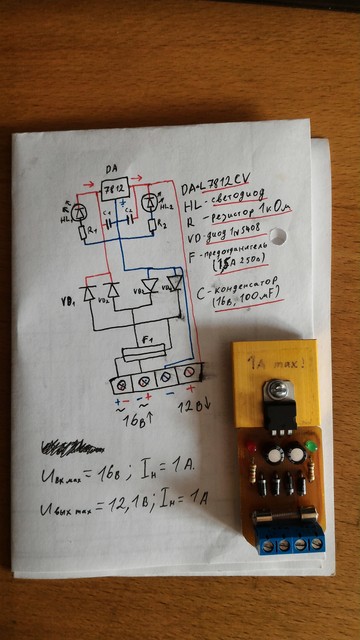 DA
7812
HL1
C1
C2
HL2
R1
R2
VD1
VD2
VD2
F1
+ - - + - +
~ ~
16В↑ 12В↓
DA-L7812CV
HL - светодиод
R - резистор 1кОм
VD - диод 1N5408
F - предохранитель
C - конденсатор
(16В, 100мF)
Uвх max = 16В ; Iн = 1А.
Uвых max = 12,1В ; Iн = 1А
1A max!